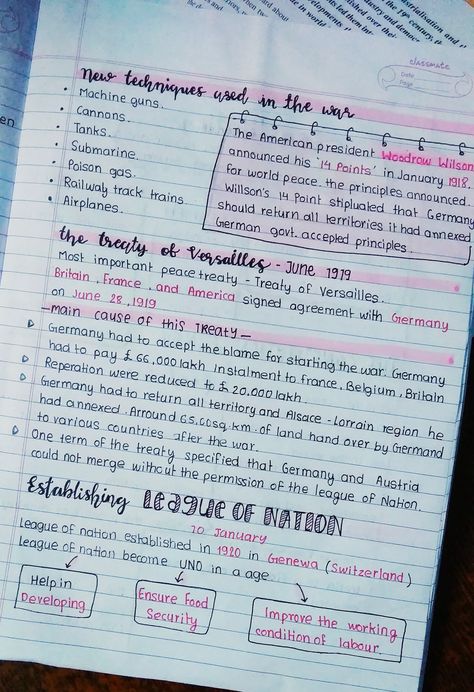 classmate
Date
Page
New techniques used in the war
• Machine guns.
• Cannons.
• Tanks.
• Submarine.
• Poison gas.
• Railway track trains.
• Airplanes.
The American president Woodrow Wilson
announced his '14 Points' in January 1918.
For world peace. the principles announced.
Willson's 14 Point stipluated that Germany
should return all territories it had annexed
German govt. accepted principles.
the treaty of Versailles - JUNE 1919
Most important peace treaty - Treaty of Versailles.
Britain, France, and America signed agreement with Germany
on June 28, 1919
—main cause of this Treaty—
Germany had to accept the blame for starting the war. Germany
had to pay £ 66,000 lakh Instalment to france, Belgium, Britain
Reperation were reduced to £ 20.000 lakh.
Germany had to return all territory and Alsace - Lorrain region he
had annexed. Arround 65.00sq.km. of land hand over by Germand
to various countries after the war.
One term of the treaty specified that Germany and Austria
could not merge without the permission of the league of Nation.
Establishing LEAGUE OF NATION
10 January
League of nation established in 1920 in Genewa (Switzerland)
League of nation become UNO in a age
Help in
Developing
Ensure Food
Security
Improve the working
condition of labour.